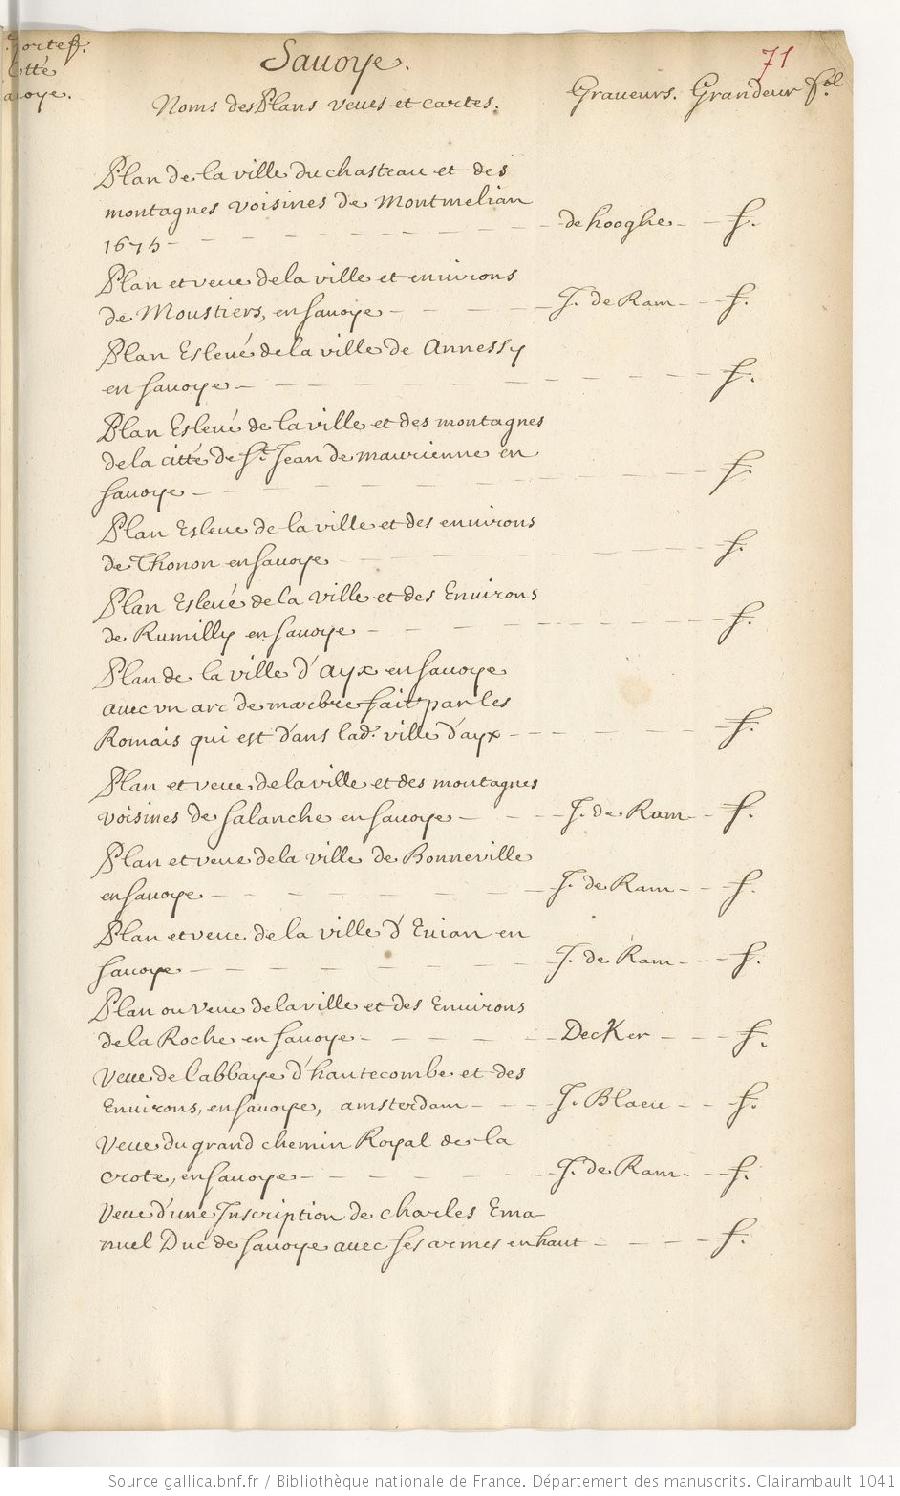 Portef.
Citté
Savoye.
71
Sauoye.
Noms des Plans veues et cartes. Graueurs. Grandeur fol
Plan de la ville du chasteau et des
montagnes voisines de Montmelian
1675 - de hooghe - f.
Plan et veue de la ville et enuirons
de Moustiers, en sauoye - J. de Ram - f.
Plan Esleué de la ville de Annessy
en sauoye - f.
Plan Esleué de la ville et des montagnes
de la citté de St. Jean de maurienne en
sauoye - f.
Plan Esleue de la ville et des enuirons
de Thonon en sauoye - f.
Plan Esleué de la ville et des Enuirons
de Rumilly en sauoye - f.
Plan de la ville d'ayx en sauoye
auec un arc de marbre fait par les
Romais qui est dans lad. ville d'ayx - f.
Plan et veue de la ville et des montagnes
voisines de salanche en sauoye - J. de Ram - f.
Plan et veue de la ville de Bonneville
en sauoye - J. de Ram - f.
Plan et veue de la ville d'Euian en
sauoye - J. de Ram - f.
Plan ou veue de la ville et des Enuirons
de la Roche en sauoye - Decker - f.
Veue de l'abbaye d'hautecombe et des
Enuirons, en sauoye, amsterdam - J. Blaeu - f.
Veue du grand chemin Royal de la
crote, en sauoye - J. de Ram - f.
Veue d'une Inscription de charles Ema-
nuel Duc de sauoye auec ses armes en haut - f.
Source gallica.bnf.fr / Bibliothèque nationale de France. Département des manuscrits. Clairambault 1041